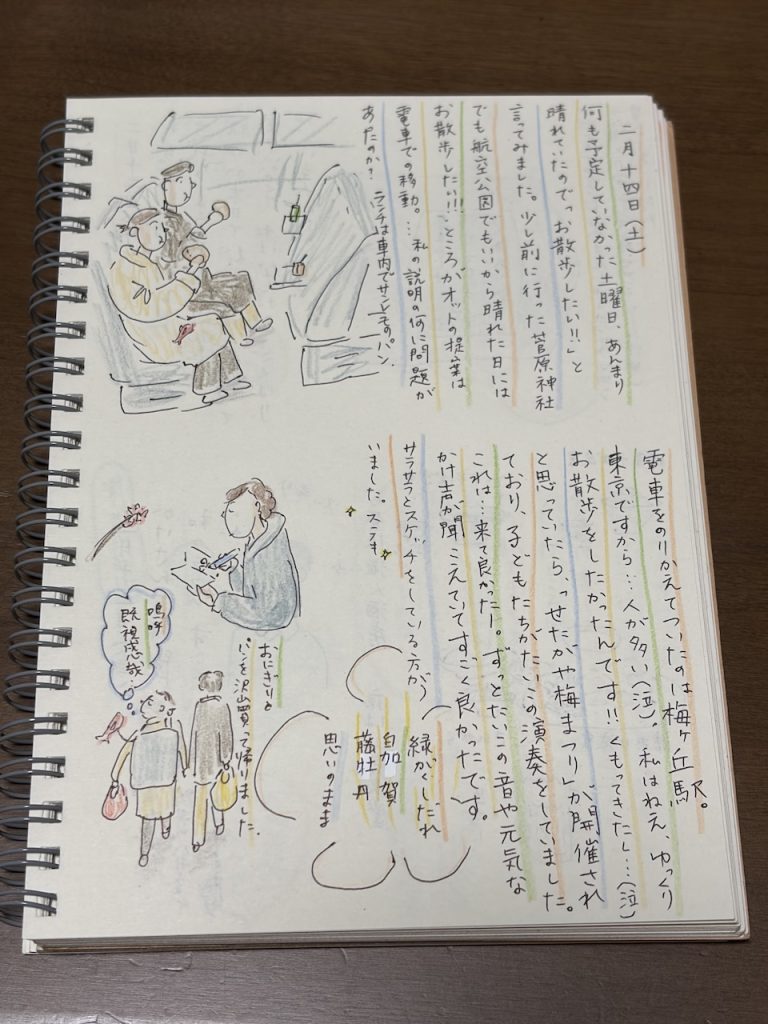 二月十四日(土)
何も予定していなかった土曜日、あんまり
晴れていたので「お散歩したい!!」と
言ってみました。少し前に行った菅原神社
でも航空公園でもいいから晴れた日には
お散歩したい!!!ところがオットの提案は
電車での移動。…私の説明の何に問題が
あたのか? ランチは車内でサンジェルマンのパン。
電車をのりかえてついたのは梅ヶ丘駅。
東京ですから…人が多い(泣)。私はねえ、ゆっくり
お散歩をしたかったんです!!くもってきたし…(泣)
と思っていたら、「せたがや梅まつり」が開催され
ており、子どもたちがたいこの演奏をしていました。
これは…来て良かったー。ずっとたいこの音や元気な
かけ声が聞こえていてすごく良かったです。
サラサラとスケッチをしている方が
いました。ステキ
緑がくしだれ
白加賀
藤牡丹
思いのまま
おにぎりと
パンを沢山買って帰りました。
嗚呼
既視感哉…